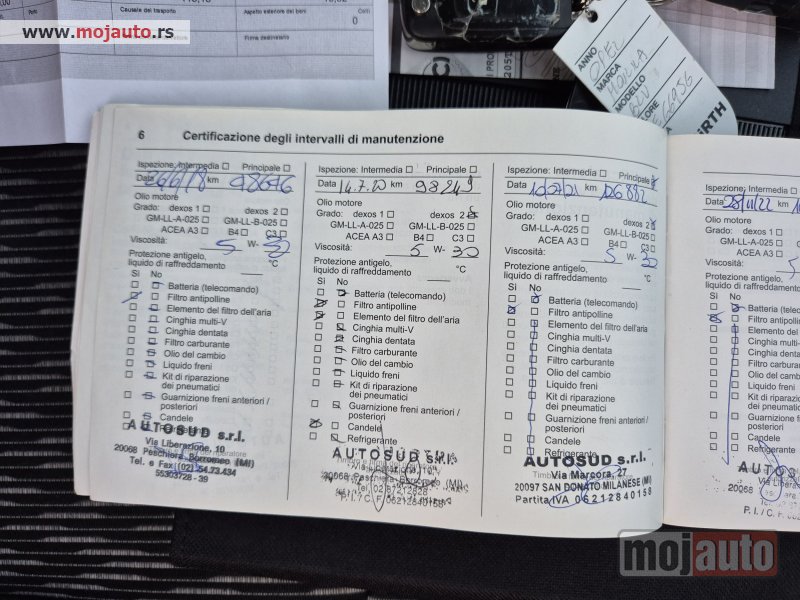 www.mojauto.rs
Causale del trasporto
Aspetto esteriore dei beni
Colli
0
Firma destinatario
ANNO
OPEL
MARCA
MODELLO
6 Certificazione degli intervalli di manutenzione
Ispezione: Intermedia Principale
Data 26/6/18 km 98676
Olio motore
Grado: dexos 1 dexos 2
GM-LL-A-025 GM-LL-B-025
ACEA A3 B4 C3
Viscosità: 5 W- 30
Protezione antigelo,
liquido di raffreddamento °C
Sì No
Batteria (telecomando)
Filtro antipolline
Elemento del filtro dell'aria
Cinghia multi-V
Cinghia dentata
Filtro carburante
Olio del cambio
Liquido freni
Kit di riparazione
dei pneumatici
Guarnizione freni anteriori /
posteriori
Candele
AUTOSUD s.r.l.
Via Liberazione, 10
20068 Peschiera Borromeo (MI)
Tel. e Fax (02) 54.73.434
55303728 - 39
Ispezione: Intermedia Principale
Data 14.7.20 km 98249
Olio motore
Grado: dexos 1 dexos 2
GM-LL-A-025 GM-LL-B-025
ACEA A3 B4 C3
Viscosità: 5 W- 30
Protezione antigelo,
liquido di raffreddamento °C
Sì No
Batteria (telecomando)
Filtro antipolline
Elemento del filtro dell'aria
Cinghia multi-V
Cinghia dentata
Filtro carburante
Olio del cambio
Liquido freni
Kit di riparazione
dei pneumatici
Guarnizione freni anteriori /
posteriori
Candele
Refrigerante
AUTOSUD s.r.l.
20068 Peschiera Borromeo (MI)
Tel. 02 97212828
P. I. / C. F. 06212840158
Ispezione: Intermedia Principale
Data 10/07/21 km 126892
Olio motore
Grado: dexos 1 dexos 2
GM-LL-A-025 GM-LL-B-025
ACEA A3 B4 C3
Viscosità: 5 W- 30
Protezione antigelo,
liquido di raffreddamento °C
Sì No
Batteria (telecomando)
Filtro antipolline
Elemento del filtro dell'aria
Cinghia multi-V
Cinghia dentata
Filtro carburante
Olio del cambio
Liquido freni
Kit di riparazione
dei pneumatici
Guarnizione freni anteriori /
posteriori
Candele
Refrigerante
AUTOSUD s.r.l.
Via Marcora, 27
20097 SAN DONATO MILANESE (MI)
Partita IVA 06212840158
Ispezione: Intermedia
Data 28/11/22 km
Olio motore
Grado: dexos 1
GM-LL-A-025
ACEA A3
Viscosità: 5
Protezione antigelo,
liquido di raffreddamento
Sì No
Batteria
Filtro antipolline
Elemento
Cinghia
Cinghia
Filtro
Olio del
Liquido
Kit di
dei
Guarnizione
posteriori
Candele
Refrigerante
AUTOSUD
20068
P. I. / C. F. 062
mojauto